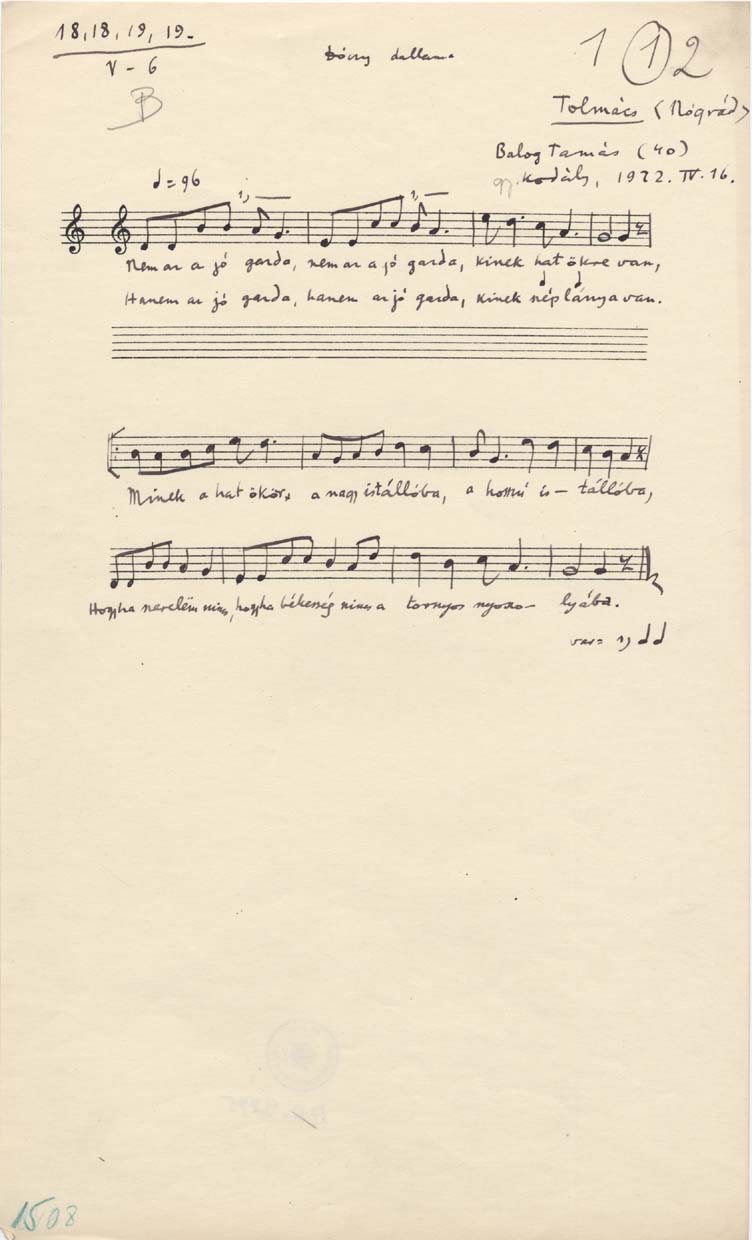 18, 18, 19, 19.
V - 6
B
Dóczy dallama
1 1 2
Tolmács (Nógrád)
Balog Tamás (40)
gy. Kodály, 1922. IV. 16.
= 96
1)
1)
Nem az a jó gazda, nem az a jó gazda, kinek hat ökre van,
Hanem az jó gazda, hanem az jó gazda, kinek szép lánya van.
Minek a hat ökör, a nagy istállóba, a hosszú is- tállóba,
Hogyha szerelëm nincs, hogyha békesség nincs a tornyos nyoszo- lyába.
var = 1)
1508